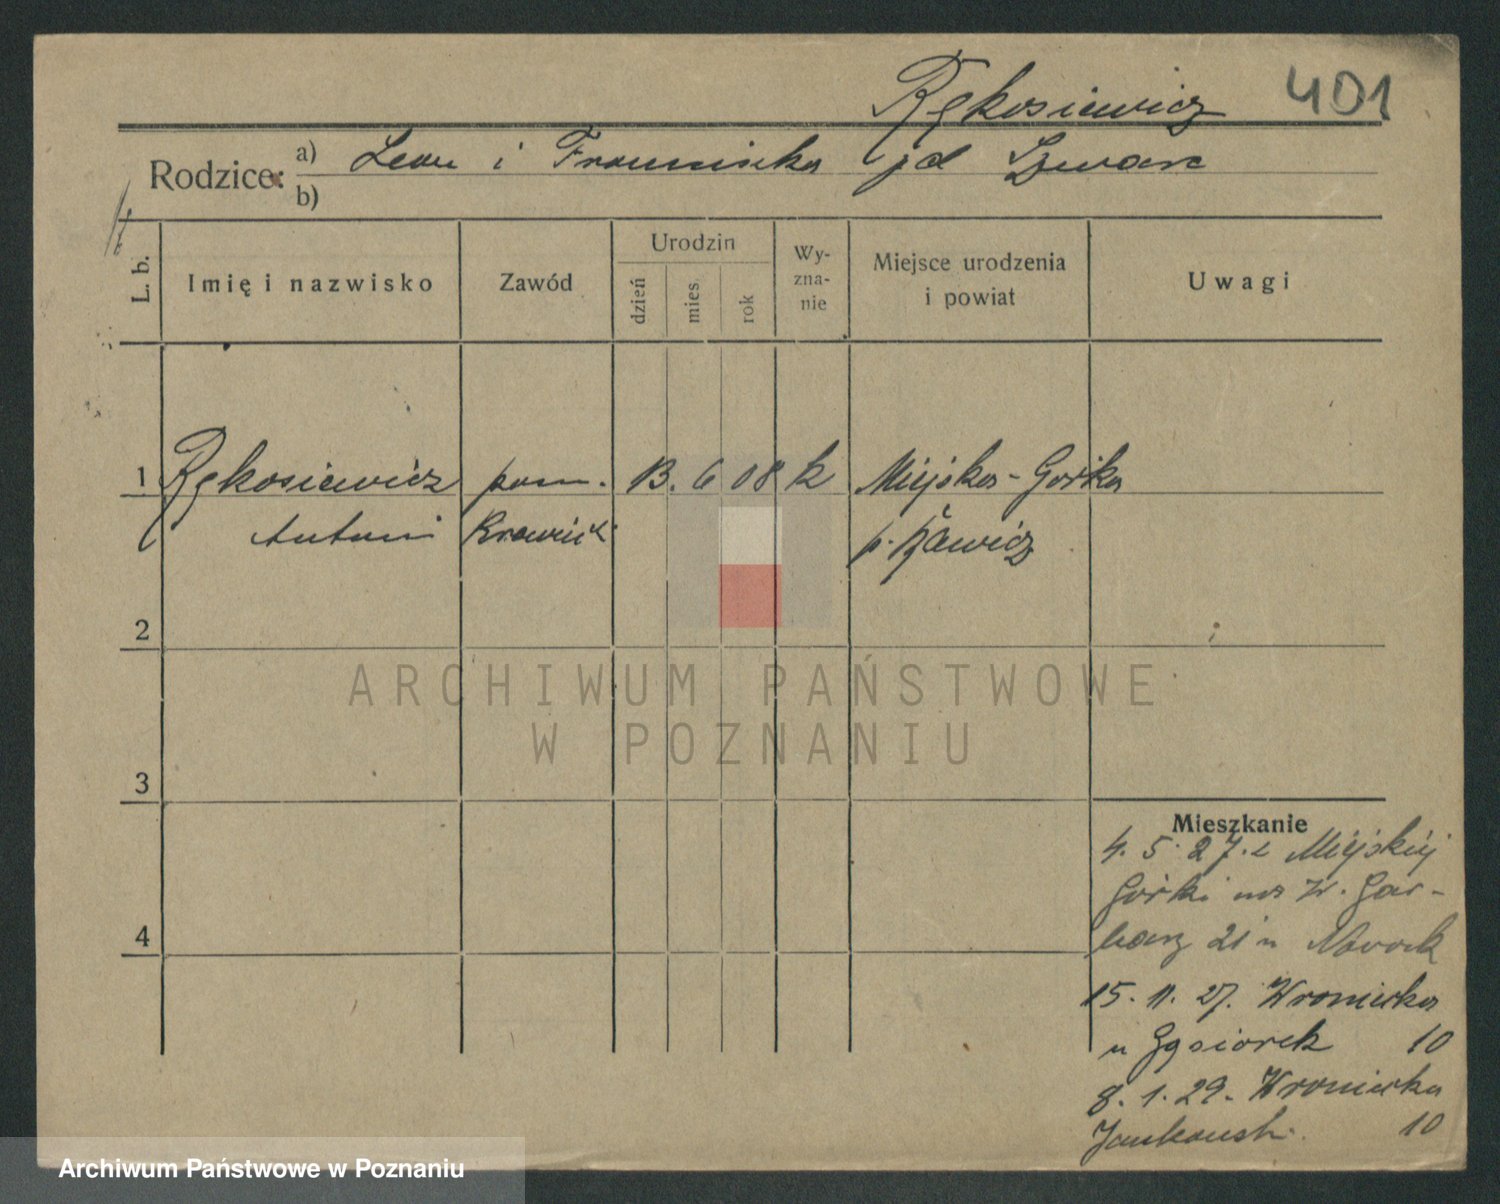 Rękosiewicz 401
Rodzice: a) Leon i Franciszka zd Szwarc
b)
L. b.
Imię i nazwisko
Zawód
Urodzin
dzień
mies.
rok
Wy-
zna-
nie
Miejsce urodzenia
i powiat
Uwagi
1 Rękosiewicz pom. 13. 6 08 k Miejska-Górka
Antoni krawieck. p. Rawicz
2
3
4
Mieszkanie
4. 5. 27. z Miejskiej
Górki na W. Gar-
barz 21 u Nowak
15. 11. 27. Wroniecka
u Gąsiorek 10
8. 1. 29. Wroniecka
Jankowsk. 10
ARCHIWUM PAŃSTWOWE
W POZNANIU
Archiwum Państwowe w Poznaniu